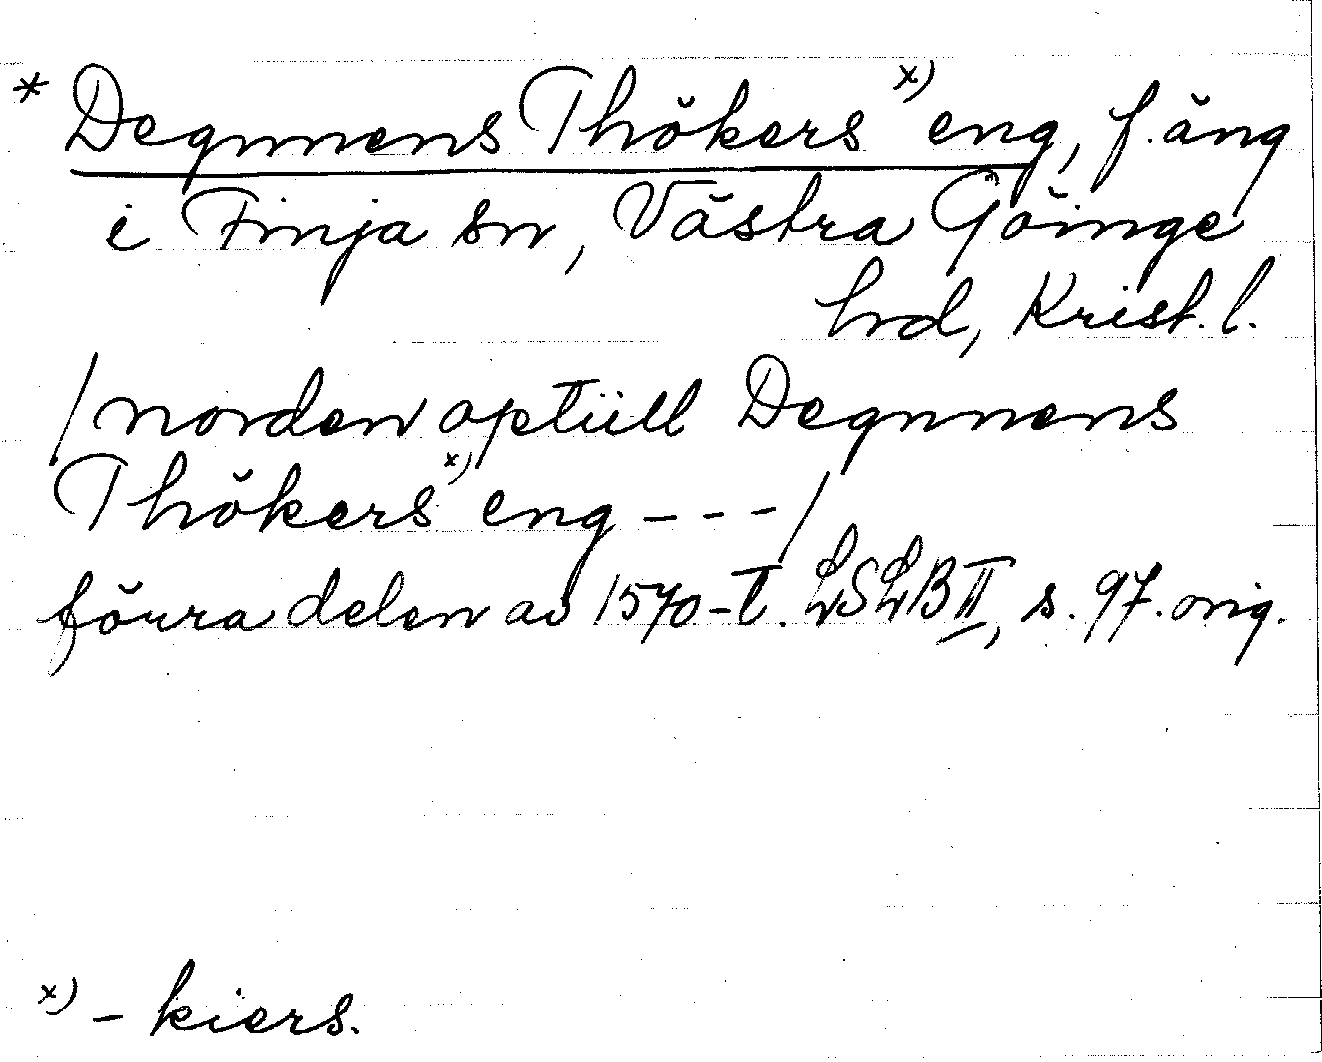 * Degnnens Thökers x) eng, f. äng
i Finja sn, Västra Göinge
hrd, Krist. l.
/norden optiill Degnnens
Thökers x) eng - - - /
förra delen av 1570-t. LSLB II, s. 97. orig.
x) - kiers.